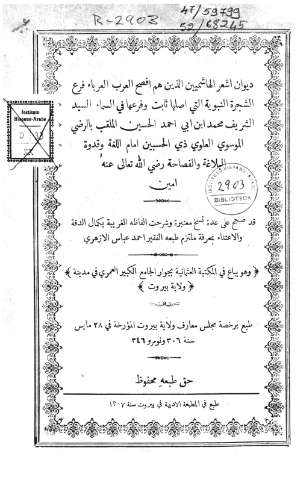 R-2903
4F/53799
52/68245
ديوان اشعر الهاشميين الذين هم افصح العرب العرباء فرع
الشجرة النبوية التي اصلها ثابت وفرعها في السماء السيد
الشريف محمد ابن ابي احمد الحسين الملقب بالرضي
الموسوي العلوي ذي الحسبين امام اللغة وقدوة
البلاغة والفصاحة رضي الله تعالى عنه
امين
Instituto
Hispano-Arabe
2903
BIBLIOTECA
قد صحح على عدة نسخ معتبرة وشرحت الفاظه الغريبة بكمال الدقة
والاعتناء بمعرفة ملتزم طبعه الفقير احمد عباس الازهري
وهو يباع في المكتبة العثمانية بجوار الجامع الكبير العمري في مدينة
ولاية بيروت
طبع برخصة مجلس معارف ولاية بيروت المؤرخة في ٢٨ مايس
سنة ٣٠٦ ونومرو ٣٤٦
حق طبعه محفوظ
طبع في المطبعة الادبية في بيروت سنة ١٣٠٧